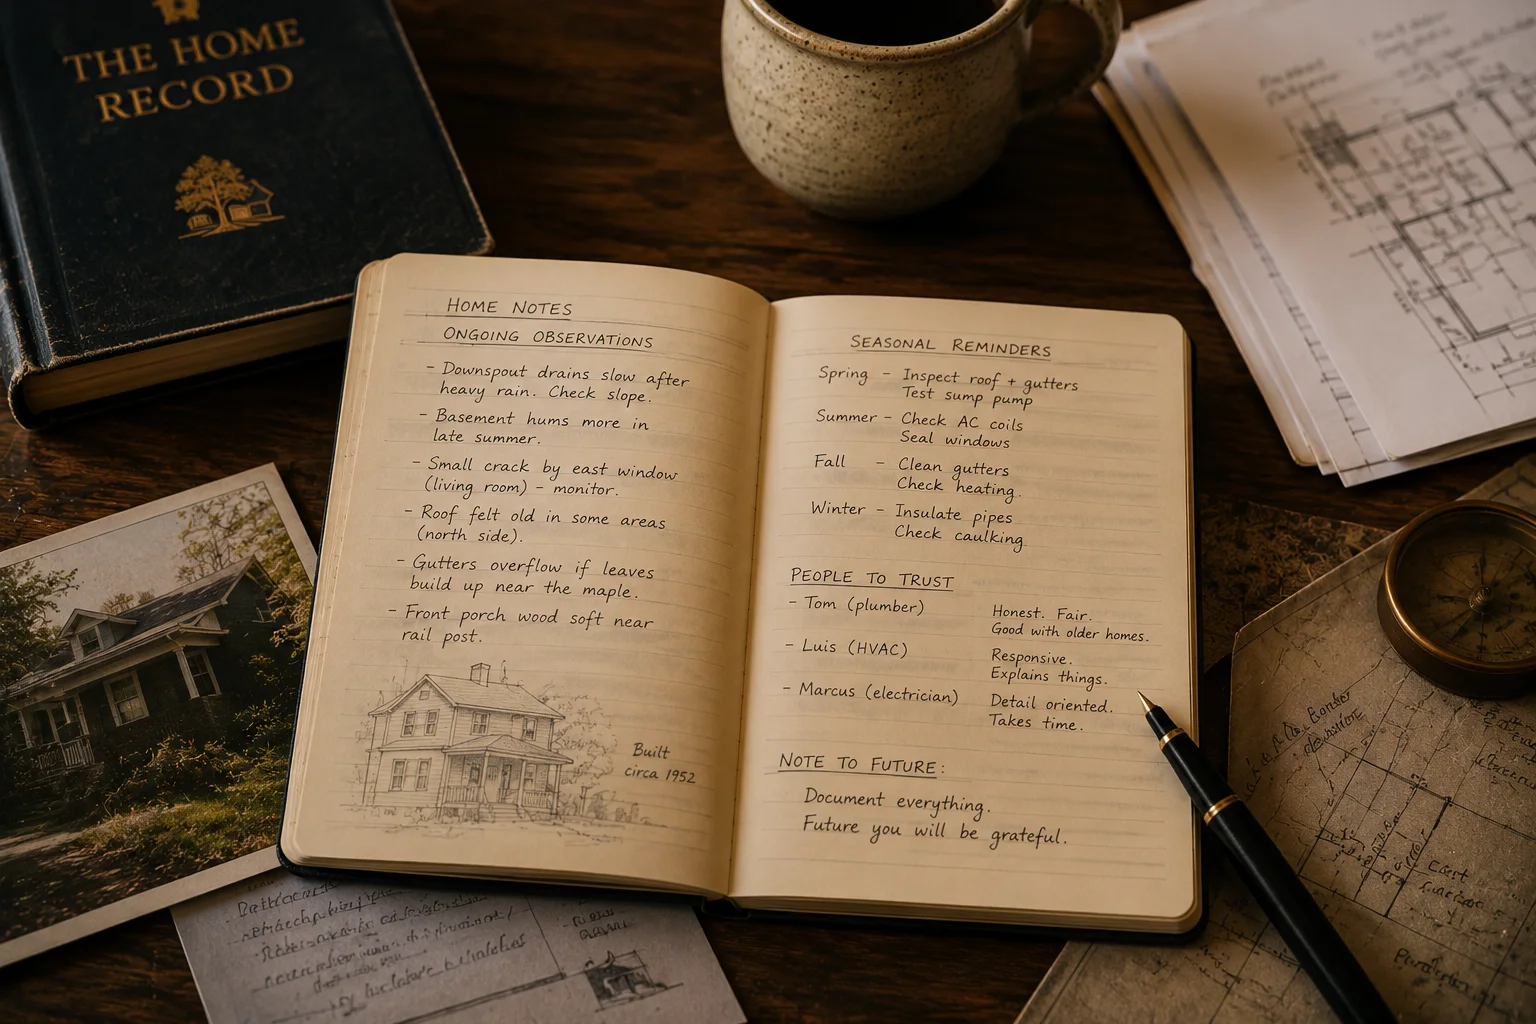 THE HOME
RECORD
HOME NOTES
ONGOING OBSERVATIONS
- Downspout drains slow after
heavy rain. Check slope.
- Basement hums more in
late summer.
- Small crack by east window
(living room) – monitor.
- Roof felt old in some areas
(north side).
- Gutters overflow if leaves
build up near the maple.
- Front porch wood soft near
rail post.
Built
circa 1952
SEASONAL REMINDERS
Spring – Inspect roof + gutters
Test sump pump
Summer – Check AC coils
Seal windows
Fall – Clean gutters
Check heating.
Winter – Insulate pipes
Check caulking
PEOPLE TO TRUST
- Tom (plumber) Honest. Fair.
Good with older homes.
- Luis (HVAC) Responsive.
Explains things.
- Marcus (electrician) Detail oriented.
Takes time.
NOTE TO FUTURE:
Document everything.
Future you will be grateful.